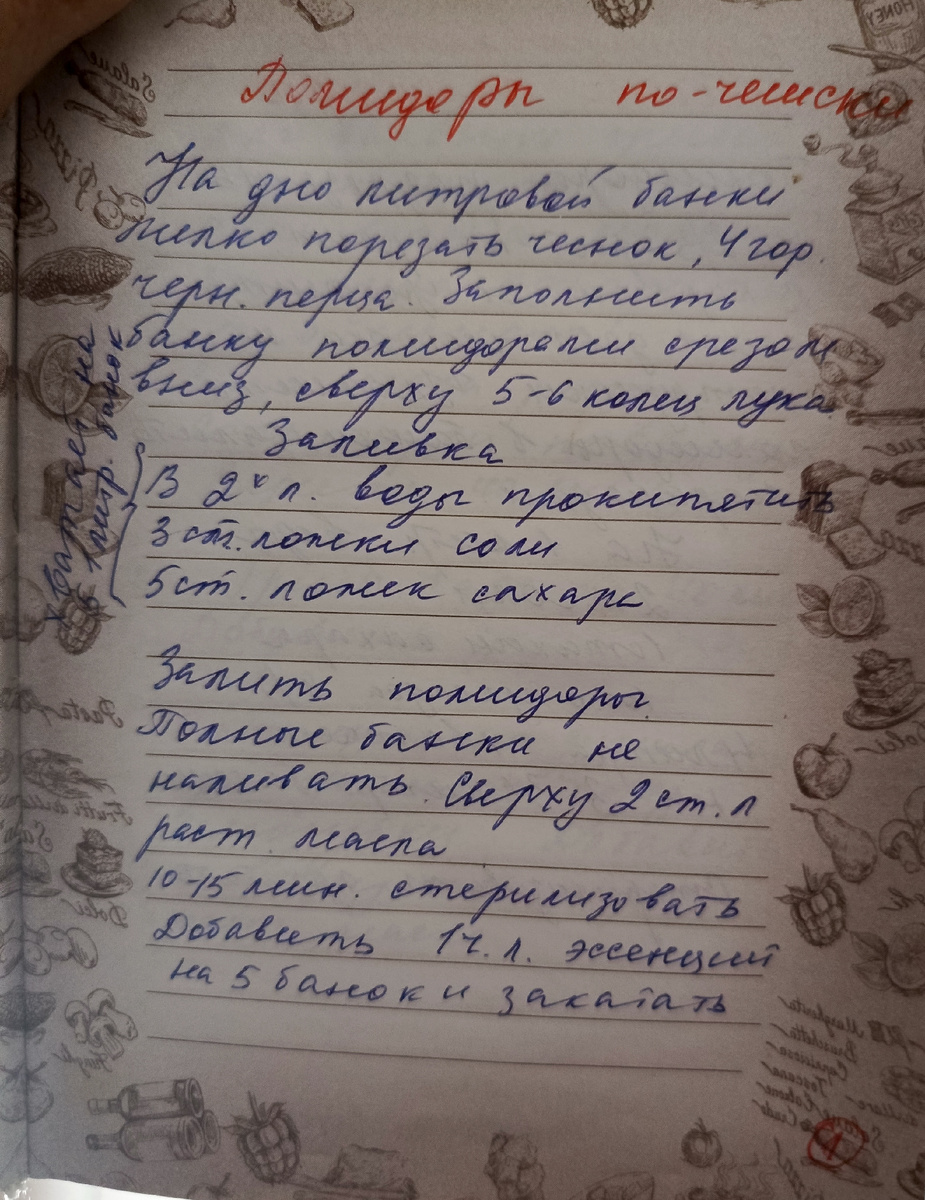 Помидоры по-чешски
На дно литровой банки
мелко порезать чеснок, 4 гор.
черн. перца. Заполнить
банку помидорами срезом
вниз, сверху 5-6 колец лука
Заливка
В 2х л. воды прокипятить
3 ст. ложки соли
5 ст. ложек сахара
Хватает на
5 литр. банок
Залить помидоры.
Полные банки не
наливать. Сверху 2 ст. л
раст. масла
10-15 мин. стерилизовать
Добавить 1 ч. л. эссенций
на 5 банок и закатать
Salame
Pizza
Pasta
Dolci
Funghi
HONEY
Dolci
Margherita
Bruschetta
Capricciosa
Toscana